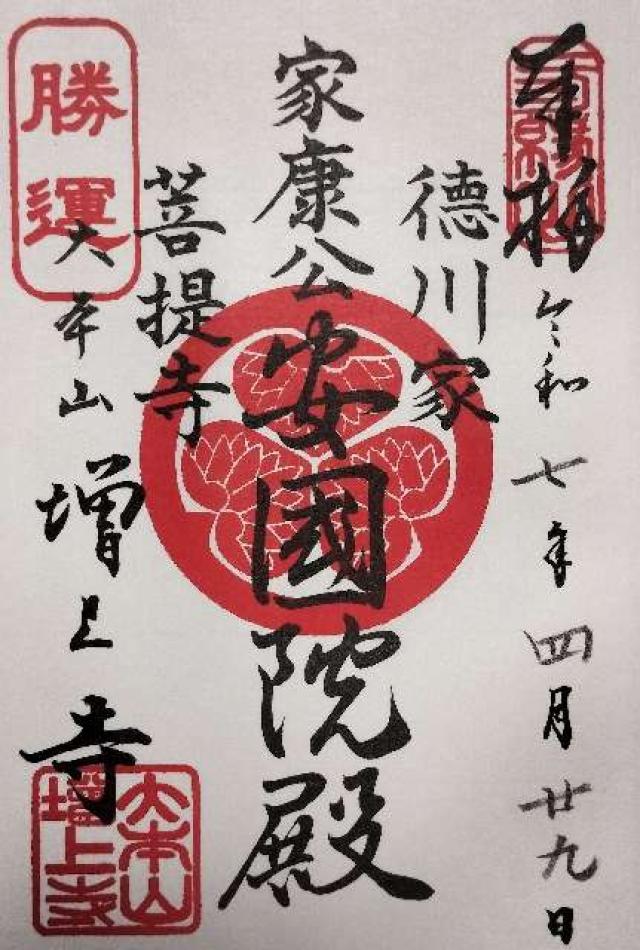 奉拝
令和七年四月廿九日
德川家
家康公安國院殿
菩提寺
勝運
大本山增上寺
大本山
增上寺